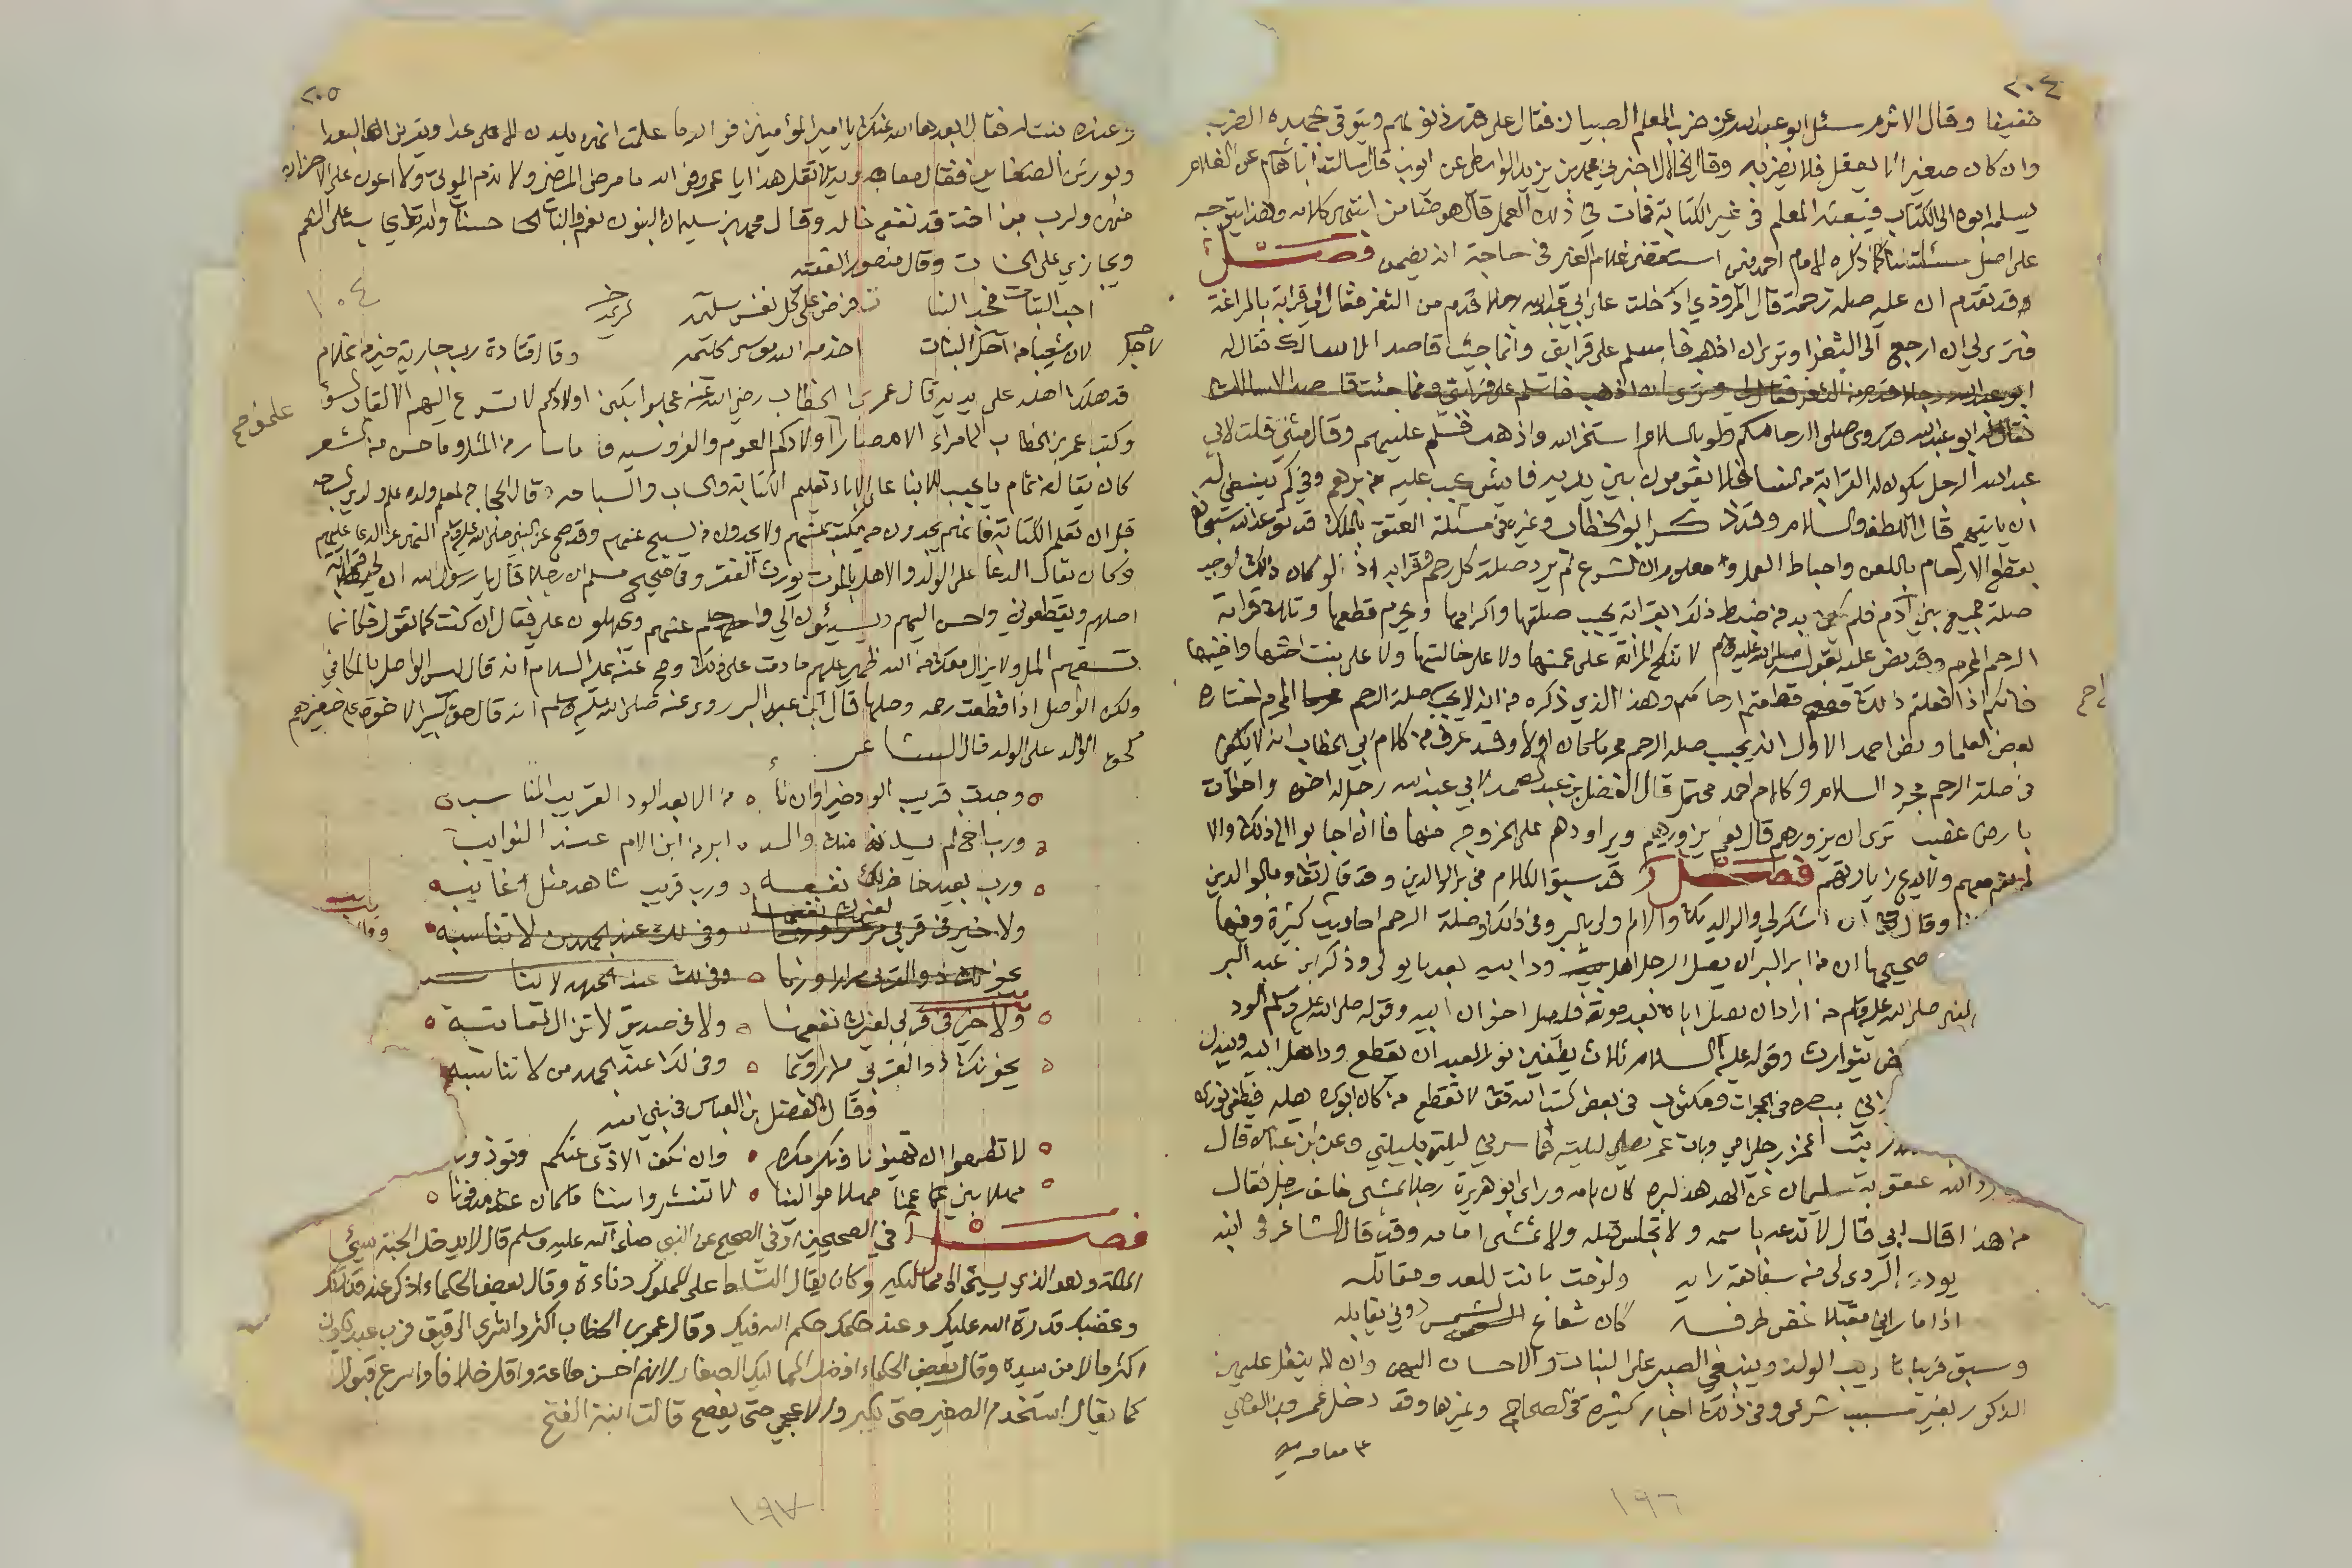 ٢٠٤
خفيفا وقال الاثرم سئل ابو عبد الله عن ضرب المعلم الصبيان فقال على قدر ذنوبهم ويتوقى بجهده الضرب
وان كان صغيرا لا يعقل فلا يضربه وقال الخلال اخبرني محمد بن يزيد الواسطي عن ايوب قال سالت ابا هاشم عن الغلام
يسلمه ابوه الى الكتاب فيبعثه المعلم في غير الكتابة فمات في ذلك العمل قال هو ضامن انتهى كلامه وهذا يتوجه
على اصل مسئلتنا كما ذكره الامام احمد فمن استقضى غلام الغير في حاجة انه يضمن فصل
وقد تقدم ان عليه صلة رحمه قال المروذي ادخلت على ابي عبد الله رجلا قدم من الثغر فقال لي قرابة بالمراغة
فترى لي ان ارجع الى الثغر او ترى ان اذهب فاسلم على قرابتي وانما جئت قاصدا لاسالك فقال له
ابو عبد الله رجلا قدم من الثغر فقال لي وترى ان اذهب فاسلم على قرابتي وانما جئت قاصدا لاسالك
فقال له ابو عبد الله قد روى صلوا ارحامكم ولو بالسلام استخر الله واذهب فسلم عليهم وقال مثنى قلت لابي
عبد الله الرجل يكون له القرابة من النساء فلا يقومون بين يديه فاي شيء يجب عليه من برهم وفي كم ينبغي له
ان ياتيهم قال اللطف والسلام وقد ذكر ابو الخطاب وغيره في مسئلة العتق بالملك قد توعد الله سبحانه
بقطع الارحام باللعن واحباط العمل ومعلوم ان الشرع لم يرد صلة كل رحم وقرابة اذ لو كان ذلك لوجب
صلة جميع بني آدم فلم يكن بد من ضبط ذلك بقرابة يجب صلتها واكرامها ويحرم قطعها وتلك قرابة
الرحم المحرم وقد نص عليه بقوله صلى الله عليه وسلم لا تنكح المراة على عمتها ولا على خالتها ولا على بنت اخيها واختها
فانكم اذا فعلتم ذلك قطعتم ارحامكم وهذا الذي ذكره من انه لا يجب صلة الرحم المحرم اختاره
بعض العلما ونص احمد الاول انه يجب صلة الرحم محرما كان او لا وقد عرف من كلام ابي الخطاب انه لا يكفي
في صلة الرحم مجرد السلام وكلام احمد محتمل قال الفضل بن عبد الصمد لابي عبد الله رجل له اخوة واخوات
بارض غصب ترى ان يزورهم قال نعم يزورهم ويراودهم على الخروج منها فان اجابوا الى ذلك والا
لم يقم معهم ولا يدع زيارتهم فصل قد سبق الكلام في بر الوالدين وقد قال تعالى وبالوالدين
وقال ان اشكر لي ولوالديك والام اولى بالبر وفي ذلك وفي صلة الرحم احاديث كثيرة وفيها
صحيحها ان من ابر البر ان يصل الرجل اهل ود ابيه بعد ما يولى وذكر ابن عبد البر
النبي صلى الله عليه وسلم من اراد ان يصل اباه بعد موته فليصل اخوان ابيه وقوله صلى الله عليه وسلم الود
يتوارث وقوله عليه السلام ثلاث يطفين نور العبد ان يقطع ود اهل ابيه ويبدل
ببصره في الحجرات ومكتوب في بعض كتب الله تعالى لا تقطع من كان ابوك يصله فيطفى نورك
بت اغمز رجل امي وبات عمر يصلي ليلته فما سرني ليلته بليلتي وعن ابن عباس قال
رد الله عقوبة سليمان عن الهدهد لبره كان بامه وراى ابو هريرة رجلا يمشي خلف رجل فقال
من هذا قال ابي قال لا تدعه باسمه ولا تجلس قبله ولا تمشي امامه وقد قال الشاعر في ابنه
يود الردى لي من سفاهة رايه ولو مت بانت للعدو مقاتله
اذا ما راني مقبلا غض طرفه كان شعاع الشمس دوني يقابله
وسبق قريبا تاديب الولد وينبغي الصبر على البنات والاحسان اليهن وان لا يفضل عليهن
الذكور بغير سبب شرعي وفي ذلك اخبار كثيرة في الصحاح وغيرها وقد دخل عمرو بن العاص
١٩٦
٢٠٥
وعنده بنت له فقال ابعدها الله عنك يا امير المؤمنين فو الله ما علمت انهن يلدن الاعدا ويقربن البعدا
ويورثن الضغاين فقال معاويه لا تقل هذا يا عمرو فو الله ما مرض المرضى ولا ندب الموتى ولا اعون على الاحزان
منهن ولرب ابن اخت قد نفع خاله وقال محمد بن سليمان البنون نعم والبنات حسنات والله تعالى يسئل على النعم
ويجازي على الحسنات وقال منصور الفقيه
احب البنات فحب البنا ت فرض على كل نفس كريمه
لان شعيبا من اجل البنات اخدمه الله موسى كليمه وقال قتادة رب جارية خير من غلام
قد هلك اهله على يديه قال عمر بن الخطاب رضي الله عنه عجلوا بكنى اولادكم لا تسرع اليهم الالقاب السوء
وكتب عمر بن الخطاب الى امراء الامصار علموا اولادكم العوم والفروسيه وما سار من المثل وما حسن من الشعر
كان يقال من تمام ما يجب للابنا على الاباء تعليم الكتابة والحساب والسباحه قال الحجاج لمعلم ولده علم ولدي السباحه
قبل ان تعلم الكتابة فانهم يجدون من يكتب عنهم ولا يجدون من يسبح عنهم وقد صح عن النبي صلى الله عليه وسلم النهي عن الدعا عليهم
وكان يقال الدعا على الولد والاهل بالموت يورث الفقر وفي صحيح مسلم ان رجلا قال يا رسول الله ان لي قرابة
اصلهم ويقطعوني واحسن اليهم ويسيئون الي واحلم عنهم ويجهلون علي فقال ان كنت كما تقول فكانما
تسفهم المل ولا يزال معك من الله ظهير عليهم ما دمت على ذلك وصح عنه عليه السلام انه قال ليس الواصل بالمكافي
ولكن الواصل اذا قطعت رحمه وصلها قال ابن عبد البر روي عنه صلى الله عليه وسلم انه قال حق كبير الاخوة على صغيرهم
كحق الوالد على الولد قال الشاعر
وجدت قريب الود خيرا وان ناى من الابعد الود القريب المناسب
ورب اخ لم يدنه منك والد ابر من ابن الام عند النوايب
ورب بعيد حاضر لك نفعه ورب قريب شاهد مثل غايب
ولا خير في قربى لغيرك نفعها ولا في صديق لا تزال تعاتبه
يخونك ذو القربى مرارا وربما وفى لك عند الجهد من لا تناسبه
وقال الفضل بن العباس في بني اميه
لا تطمعوا ان تهينونا ونكرمكم وان نكف الاذى عنكم وتوذونا
مهلا بني عمنا مهلا موالينا لا تنشروا بيننا ما كان مدفونا
فصل في الصحيحين او في الصحيح عن النبي صلى الله عليه وسلم قال لا يدخل الجنة سيئ
الملكة وهو الذي يسيئ الى مماليكه وكان يقال التسلط على المملوك دناءة وقال بعض الحكماء اذكر عند قدرتك
وغضبك قدرة الله عليك وعند حكمك حكم الله فيك وقال عمر بن الخطاب اكثروا شرى الرقيق فرب عبد يكون
اكثر مالا من سيده وقال بعض الحكماء افضل المماليك الصغار لانهم احسن طاعة واقل خلافا واسرع قبولا
كما يقال استخدم الصغير حتى يكبر والاعجمي حتى يفصح قالت ابنة الفتح
١٩٧